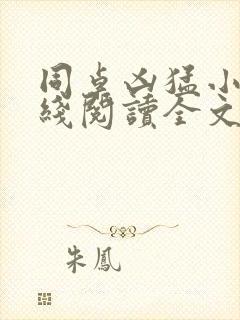 周卓凶猛小
綫閱讀全文
朱鳳